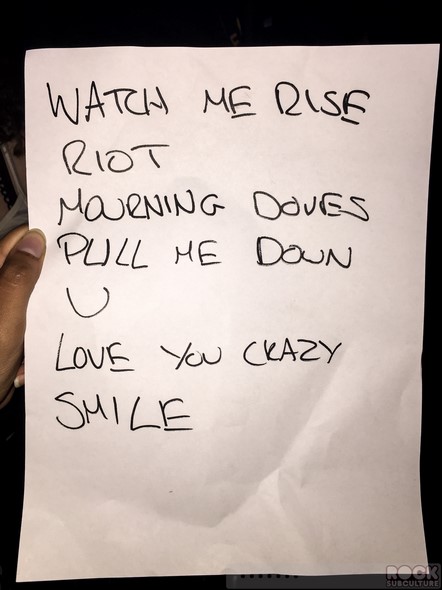 WATCH ME RISE
RIOT
MOURNING DOVES
PULL ME DOWN
U
LOVE YOU CRAZY
SMILE
ROCK
SUBCULTURE